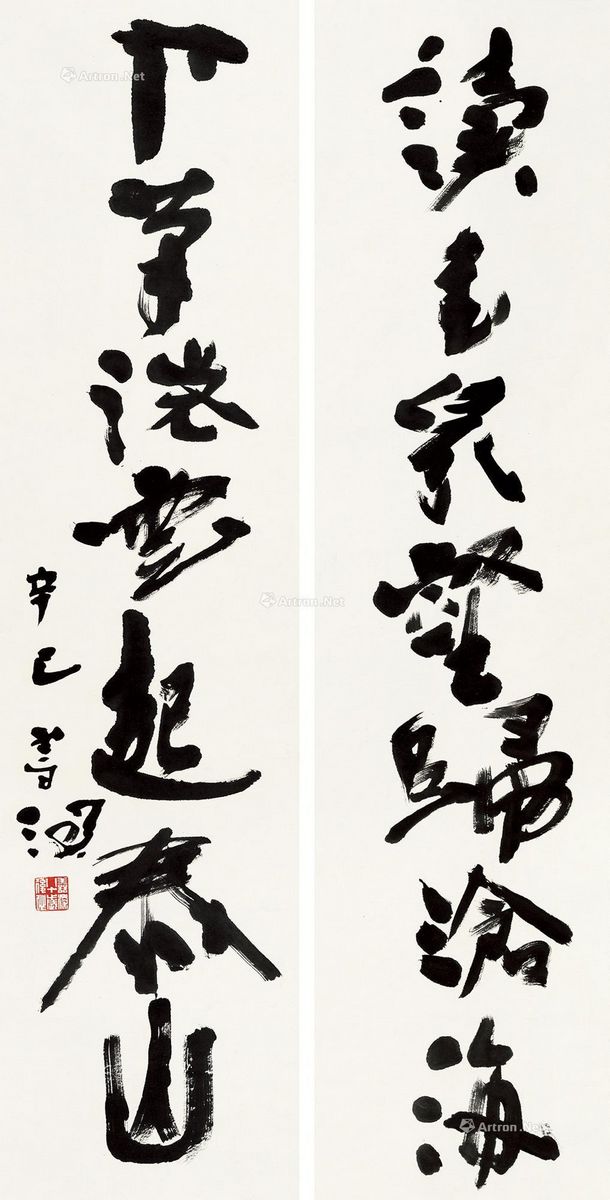 讀書眾壑歸滄海
下筆微雲起泰山
辛巳
Artron.Net
Artron.Net
Artron.Net